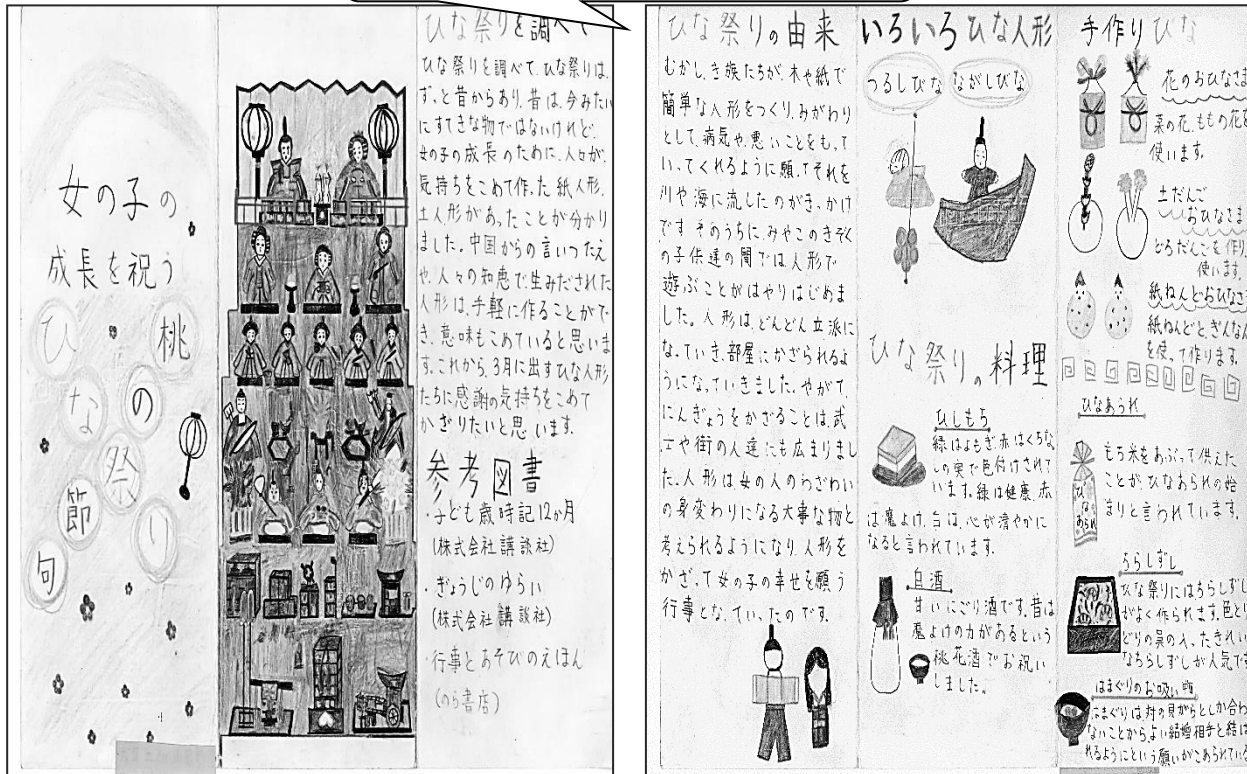 女の子の
成長を祝う
ひな祭り
桃の節句
ひな祭りを調べて
ひな祭りを調べて、ひな祭りは、
ずっと昔からあり、昔は、今みたい
にすてきな物ではないけれど、
女の子の成長のために、人々が、
気持ちをこめて作った紙人形、
土人形があったことが分かり
ました。中国からの言いつたえ
や、人々の知恵で生みだされた
人形は、手軽に作ることがで
き、意味もこめていると思いま
す。これから、3月に出すひな人形
たちに感謝の気持ちをこめて
かざりたいと思います。
参考図書
・子ども歳時記12か月
(株式会社講談社)
・ぎょうじのゆらい
(株式会社講談社)
・行事とあそびのえほん
(のら書店)
ひな祭りの由来
むかし、き族たちが、木や紙で
簡単な人形をつくり、みがわり
として、病気や悪いことをもって
いってくれるように願ってそれを
川や海に流したのがきっかけ
です。そのうちに、みやこのきぞく
の子供達の間では人形で
遊ぶことがはやりはじめま
した。人形は、どんどん立派に
なっていき、部屋にかざられるよ
うになっていきました。やがて、
にんぎょうをかざることは、武
士や街の人達にも広まりまし
た。人形は女の人のわざわい
の身変わりになる大事な物と
考えられるようになり、人形を
かざって女の子の幸せを願う
行事となっていったのです。
いろいろひな人形
つるしびな
ながしびな
ひな祭りの料理
ひしもち
緑はよもぎ、赤はくちな
しの実で色付けされて
います。緑は健康、赤
は魔よけ、白は、心が清やかに
なると言われてます。
白酒
甘いにごり酒です。昔は
魔よけの力があるという
桃花酒でお祝い
しました。
手作りひな
花のおひなさま
菜の花、ももの花を
使います。
土だんご
おひなさま
どろだんごを作り、
使います。
紙ねんどおひなさ
紙ねんどと、ぎんなん
を使って作ります。
ひなあられ
もち米をあぶって供えた
ことが、ひなあられの始
まりと言われています。
ひなあられ
ちらしずし
ひな祭りにはちらしずし
がよく作られます。色と
どりの具の入ったきれい
なちらしずしが人気で
はまぐりのお吸い物